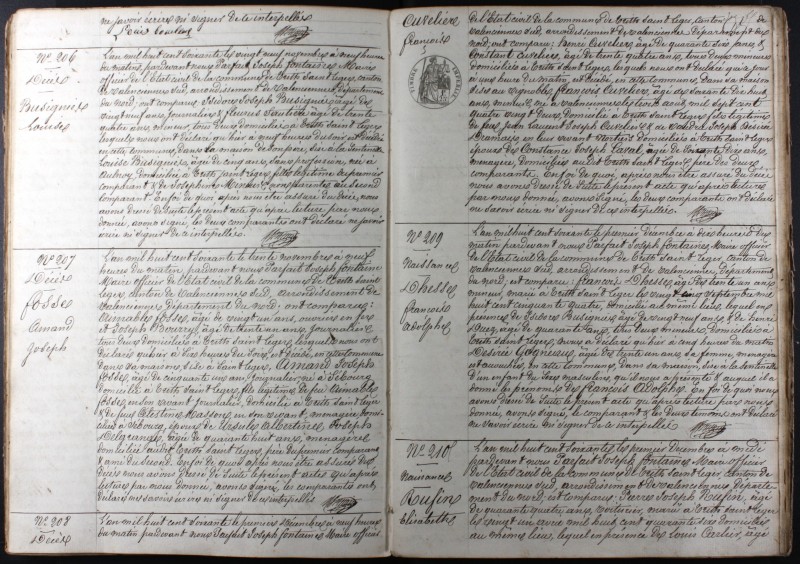 ne savoir écrire ni signer de ce interpellés
N° 206
Décès
Busignies
Louise
L'an mil huit cent soixante le vingt neuf novembre à neuf heures
du matin, pardevant nous Parfait Joseph Fontaine, Maire
officier de l'Etat civil de la commune de Trith Saint Léger, canton
de Valenciennes sud, arrondissement de Valenciennes, département
du Nord, ont comparu Isidore Joseph Busignies âgé de
vingt neuf ans, journalier &
quatre ans, tous deux domiciliés à Trith Saint Léger
lesquels nous ont déclaré qu'hier à
en cette commune, dans la maison de son père, sise à la Sentinelle
Louise Busignies, âgée de cinq ans, sans profession, née à
Aubry, domiciliée à Trith Saint Léger, fille légitime du premier
comparant & de Joséphine
comparant. En foi de quoi après nous être assuré du décès, nous
avons dressé de suite le présent acte qu'après lecture par nous
donnée, avons signé, les deux comparants ont déclaré ne savoir
écrire ni signer de ce interpellés.
N° 207
Décès
Fosse
Amand
Joseph
L'an mil huit cent soixante le trente novembre à neuf
heures du matin pardevant nous Parfait Joseph Fontaine
Maire officier de l'Etat civil de la commune de Trith Saint
Léger, canton de Valenciennes sud, arrondissement de
Valenciennes, département du Nord, ont comparu:
Aimable Fosse, âgé de vingt un ans, ouvrier en fer
et Joseph Bourez, âgé de trente un ans, journalier
tous deux domiciliés à Trith Saint Léger lesquels nous ont
déclaré qu'hier à
dans sa maison, sise à Saint Léger, Amand Joseph
Fosse, âgé de cinquante un ans, journalier né à Sebourg
domicilié à Trith Saint Léger, fils légitime de feu Aimable
Fosse, en son vivant journalier, domicilié à Trith Saint Léger
& de feue Célestine Masson, en son vivant, ménagère, domi-
ciliée à Sebourg, époux de Ursule Albertine Joseph
Delgrange, âgée de quarante huit ans, ménagère
domiciliée audit Trith Saint Léger, père du premier comparant
& ami du second. En foi de quoi après nous être assuré du
décès nous avons dressé de suite le présent acte qu'après
lecture par nous donnée, avons signé, les comparants ont
déclaré ne savoir écrire ni signer de ce interpellés
N° 208
Décès
L'an mil huit cent soixante le premier décembre à neuf heures
du matin pardevant nous Parfait Joseph Fontaine Maire officier
Cuvelier
François
TIMBRE IMPERIAL
de l'Etat civil de la commune de Trith Saint Léger, canton de
Valenciennes sud, arrondissement de Valenciennes, département du
Nord, ont comparu: Henri Cuvelier, âgé de quarante six ans &
Constant Cuvelier, âgé de trente quatre ans, tous deux
domiciliés à Trith Saint Léger, lesquels nous ont déclaré
à une heure du matin, est décédé, en cette commune, dans sa maison
sise au vignoble, François Cuvelier, âgé de soixante dix huit
ans, né à Valenciennes le
quatre vingt deux, domicilié à Trith Saint Léger fils légitime
de feu Jean Laurent Joseph Cuvelier &
en leur vivant domiciliés à Trith Saint Léger
époux de Constance Joseph Laval, âgée de soixante dix ans
ménagère, domiciliée audit Trith Saint Léger, père des deux
comparants. En foi de quoi, après nous être assuré du décès
nous avons dressé de suite le présent acte qu'après lecture
par nous donnée, avons signé, les deux comparants ont déclaré
ne savoir écrire ni signer de ce interpellés.
N° 209
Naissance
Dhesse
François
Adolphe
L'an mil huit cent soixante le premier décembre à dix heures du
matin pardevant nous Parfait Joseph Fontaine, Maire officier
de l'Etat civil de la commune de Trith Saint Léger, canton de
Valenciennes sud, arrondissement de Valenciennes, département
du Nord, est comparu: François Dhesse, âgé de trente un ans
mineur, marié à Trith Saint Léger le vingt cinq septembre mil
huit cent cinquante quatre, domicilié au même lieu, lequel en
présence de Isidore Busignies âgé de vingt neuf ans, & de Henri
Ducq, âgé de quarante ans, tous deux mineurs, domiciliés à
Trith Saint Léger, nous a déclaré qu'hier à cinq heures du matin
Désirée Gagneaux, âgée de trente un ans, sa femme, ménagère
est accouchée, en cette commune, dans sa maison, sise à la Sentinelle
d'un enfant du sexe masculin, qu'il nous a présenté & auquel il a
donné les prénoms de François Adolphe. En foi de quoi nous
avons dressé de suite le présent acte qu'après lecture par nous
donnée, avons signé, le comparant & les deux témoins ont déclaré
ne savoir écrire ni signer de ce interpellés
N° 210
Naissance
Rufin
Elisabeth
L'an mil huit cent soixante, le premier décembre à midi
pardevant nous Parfait Joseph Fontaine Maire officier
de l'Etat civil de la commune de Trith Saint Léger canton de
Valenciennes sud, arrondissement de Valenciennes, départe-
ment du Nord, est comparu: Pierre Joseph Rufin, âgé
de quarante quatre ans, voiturier, marié à Trith Saint Léger
le vingt un avril mil huit cent quarante six domicilié
au même lieu, lequel en présence de Louis Carlier, âgé